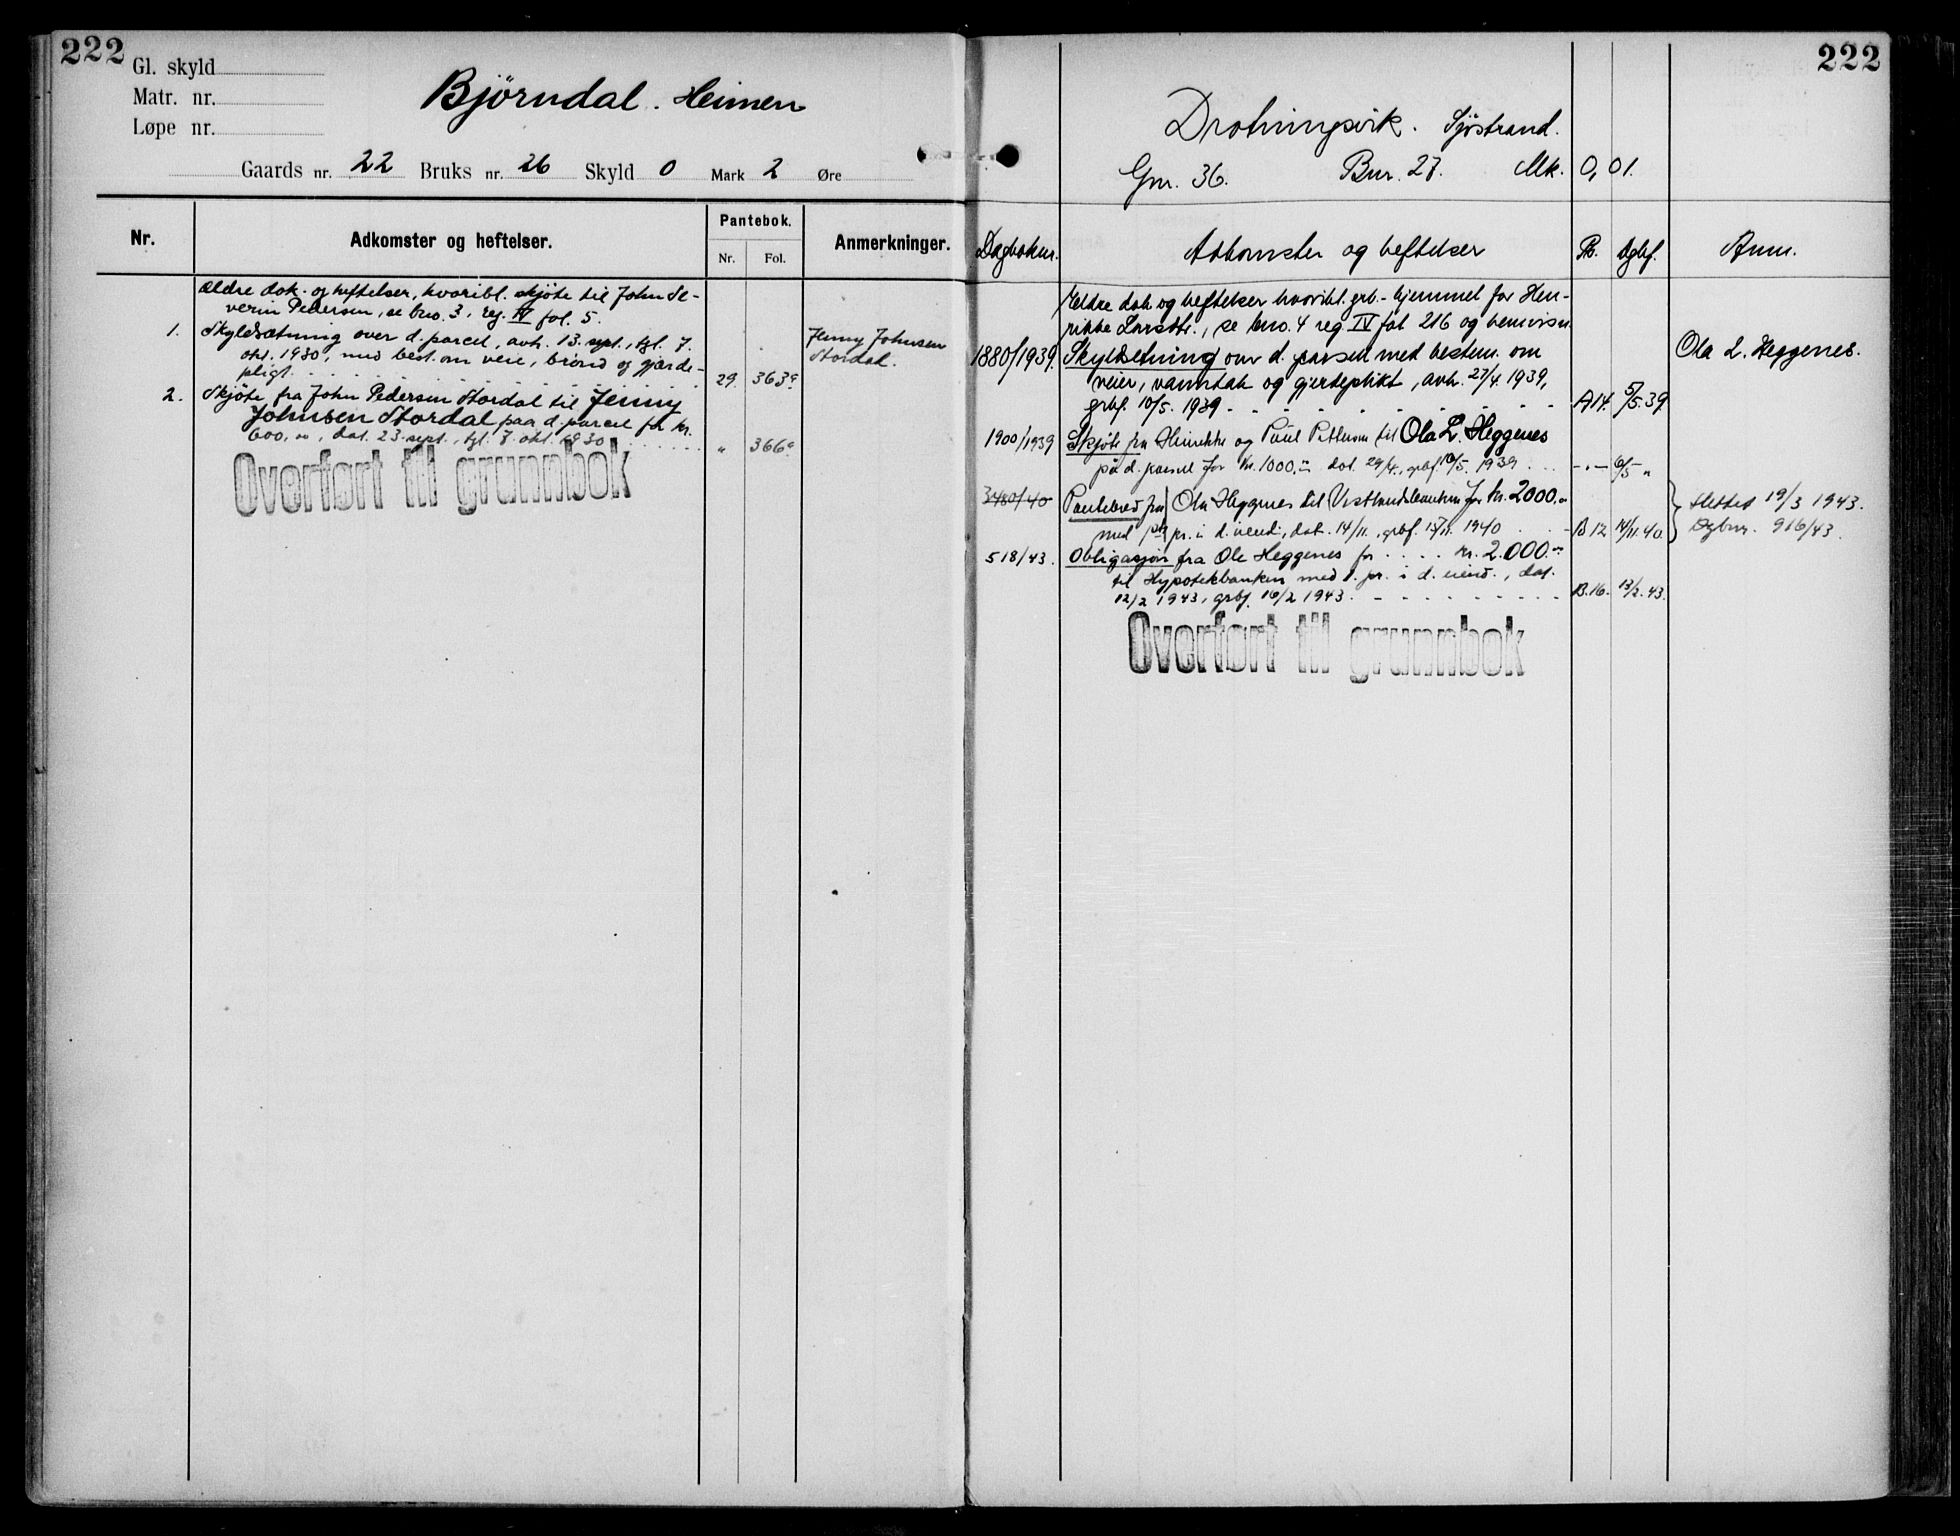 222
Gl. skyld
Matr. nr.
Løpe nr.
Bjørndal. Heimen
Gaards nr. 22 Bruks nr. 26 Skyld 0 Mark 2 Øre
Nr.
Adkomster og heftelser.
Pantebok.
Nr. Fol.
Anmerkninger.
Ældre dok. og heftelser, hvoribl. skjøte til John Se-
verin Pedersen, se bno. 3, reg. IV fol. 5.
1. Skyldsætning over d. parcel, avh. 13. sept., tgl. 7.
okt. 1930, med best. om veie, brønd og gjærde-
pligt. 29. 363a
Jenny Johnsen
Stordal.
2. Skjøte fra John Pedersen Stordal til Jenny
Johnsen Stordal paa d. parcel for kr.
600,00, dat. 23. sept., tgl. 7. okt. 1930 " 366a
Overført til grunnbok
222
Drotningsvik. Sjøstrand.
Gnr. 36. Bnr. 27. Mk. 0,01.
Dagboknr. Adkomster og heftelser Pb. Dgbf. Anm.
Eldre dok og heftelser hvoribl. grb.-hjemmel for Hen-
rikke Larsdtr., se bno. 4 reg IV fol 216 og henvisn.
1880/1939. Skyldsetning over d. parsell med bestem. om
veier, vanntak og gjerdeplikt, avh. 27/4. 1939,
grbf. 10/5. 1939 A 14. 5/5. 39.
Ola L. Heggenes.
1900/1939 Skjøte fra Henrikke og Paul Pettersen til Ola L. Heggenes
på d. parsell for kr. 1000,00 dat. 29/4., grbf. 10/5. 1939 -"- 6/5 "
3480/40 Pantebrev fra Ola Heggenes til Vestlandsbanken for kr. 2000.00
med pr. i d. eiend., dat. 14/11., grbf. 15/11. 1940 B 12 14/11. 40.
Slettet 19/3 1943.
Dgbnr. 916/43.
518/43. Obligasjon fra Ole Heggenes for kr. 2.000.00
til Hypotekbanken med 1. pr. i d. eiend., dat.
12/2 1943, grbf. 16/2 1943. B.16. 13/2. 43.
Overført til grunnbok